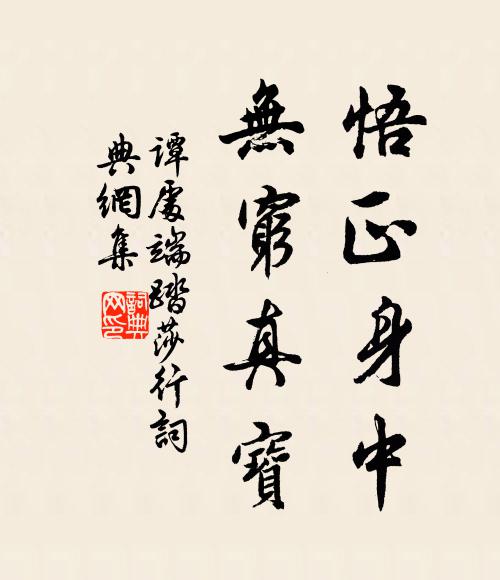 悟正身中
無窮真寶
譚處端踏莎行詞
典網集
詞典
网印